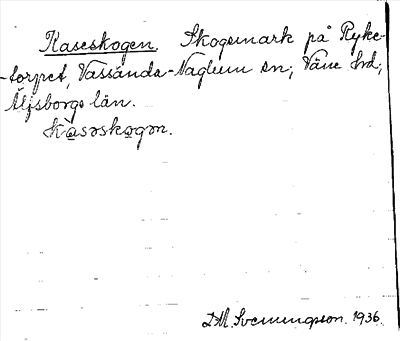 Kaseskogen. Skogsmark på Ryke-
-torpet, Vassända-Naglum sn; Väne hd;
Älfsborgs län.
kasəskogən.
D.M. Svenungsson. 1936.